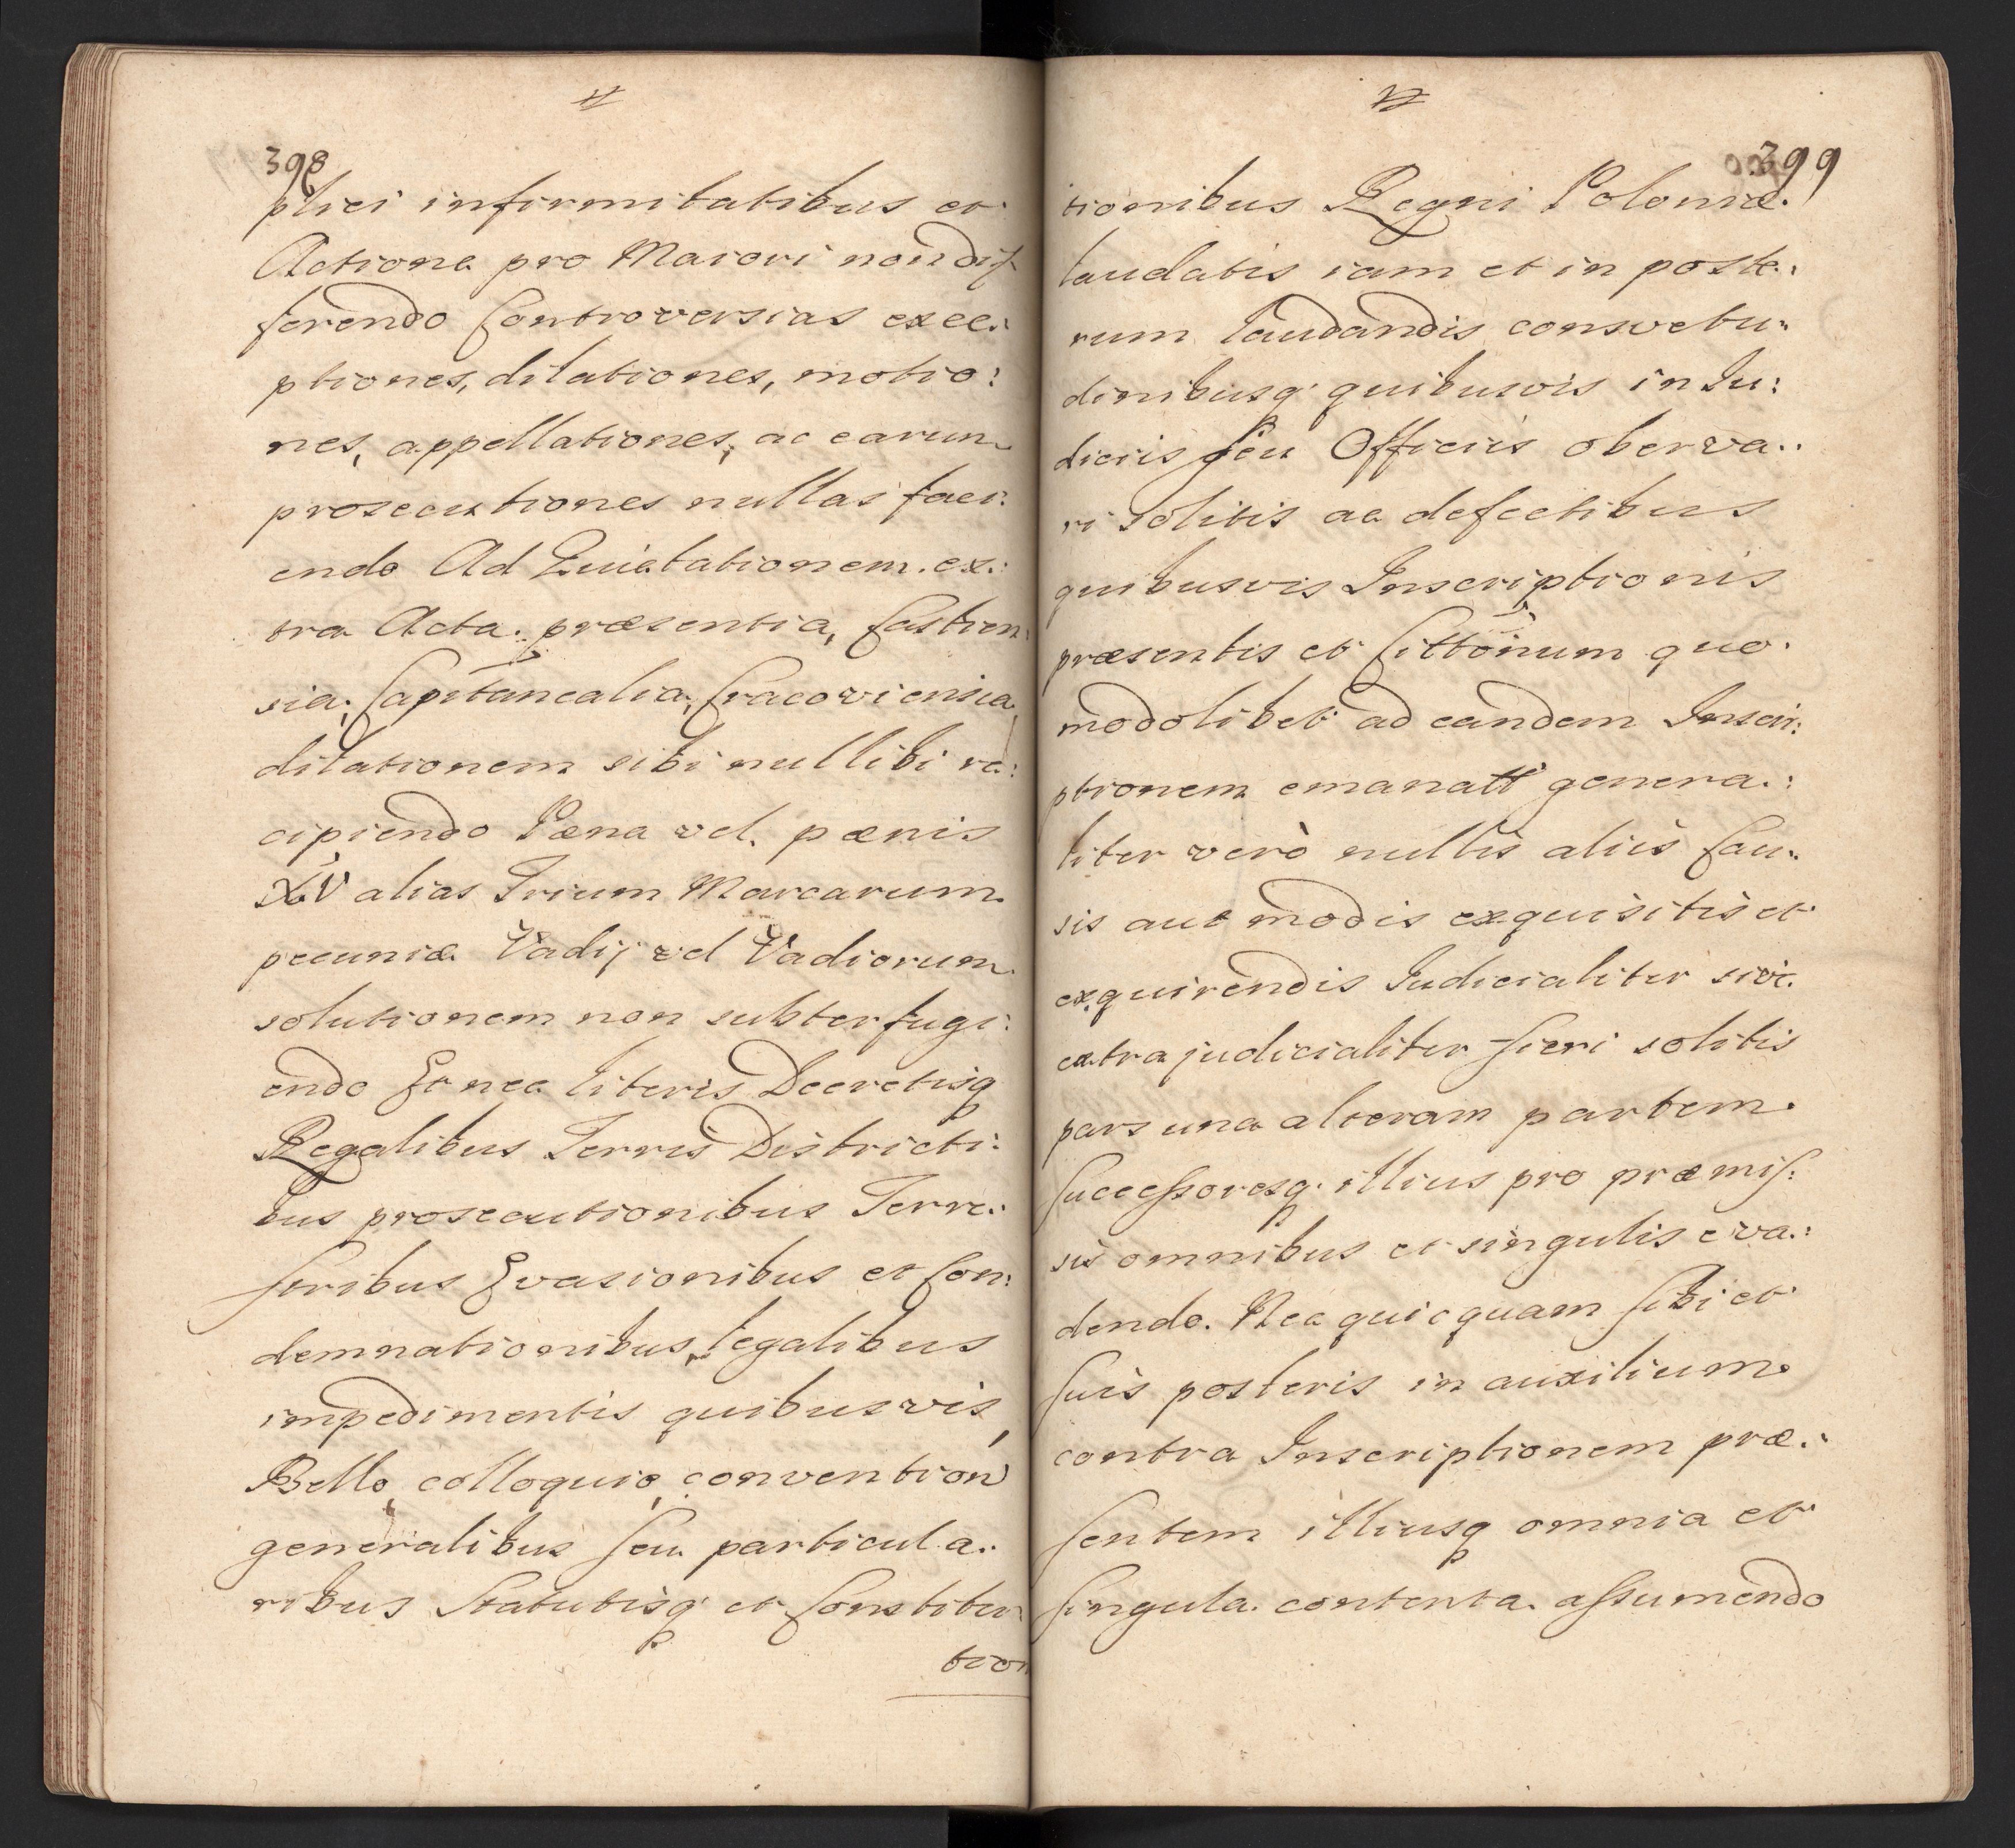 398
plici infirmitatibus et
Actione pro Maiori non dif
ferendo Controversias exce:
ptiones, dilationes, motio:
nes, appellationes, ac earum
prosecutiones nullas faci:
endo Ad Quietationem ex:
tra Acta præsentia, Castren:
sia, Capitanealia, Cracoviensia,
dilationem sibi nullibi re:
cipiendo Pæna vel pænis
XV alias Trium Marcarum
pecuniæ Vadij vel Vadiorum
solutionem non subterfugi:
endo Et nec literis Decretisq
Regalibus Terris Districti:
bus prosecutionibus Terre:
stribus Evasionibus et Con:
demnationibus, legalibus
impedimentis quibusvis,
Bello, colloquio, convention
generalibus seu particula:
ribus Statutisq et Constitu
tion
399
tionibus Regni Poloniæ.
laudatis iam et in poste:
rum laudandis consvetu:
dinibusq quibusvis in Iu:
diciis seu Officiis oberva:
ri solitis ac defectibus
quibusvis Inscriptionis
præsentis et Cittonum quo:
modolibet ad eandem Inscri:
ptionem emanatt genera:
liter verò nullis aliis Cau:
sis aut modis exquisitis et
exquirendis Iudicialiter sive
extrajudicialiter fieri solitis
pars una alteram partem
Successoresq illius pro præmis:
sis omnibus et singulis eva:
dendo. Nec quicquam sibi et
suis posteris in auxilium
contra Inscriptionem præ:
sentem illiusq omnia et
singula contenta assumendo